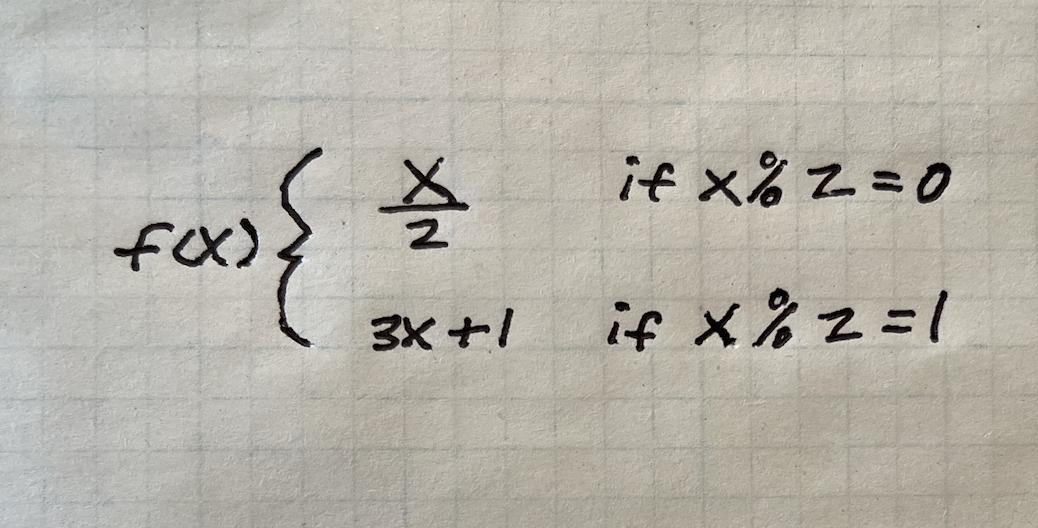 f(x) { x/2 if x % 2 = 0
3x + 1 if x % 2 = 1